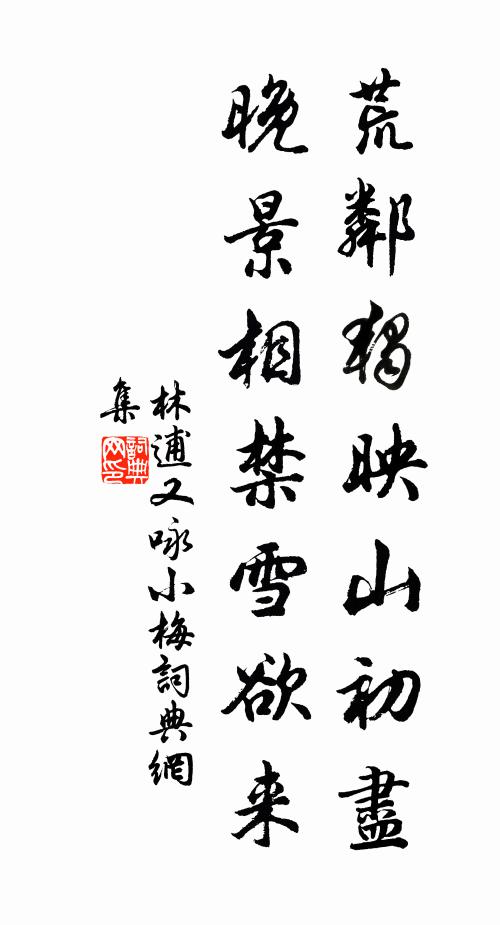 荒鄰獨映山初盡
晚景相禁雪欲来
林逋又咏小梅詞典網
集
詞典网印